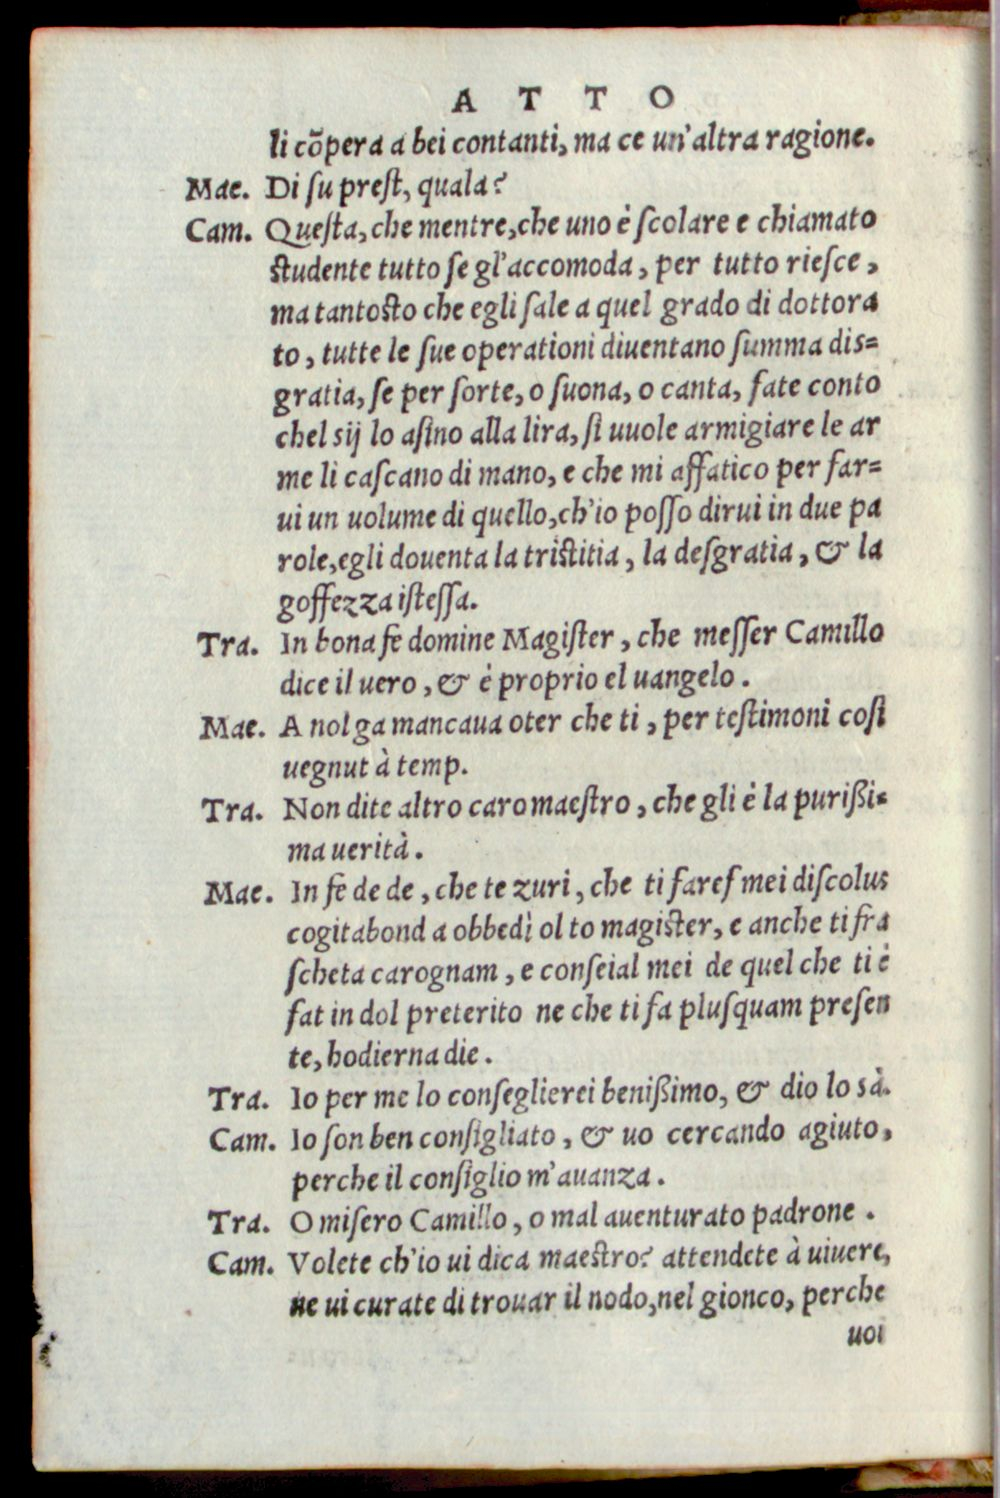 ATTO
li cõpera a bei contanti, ma ce un'altra ragione.
Mae. Di ſu preſt, quala?
Cam. Queſta, che mentre, che uno è ſcolare e chiamato
ſtudente tutto ſe gl'accomoda, per tutto rieſce,
ma tantoſto che egli ſale a quel grado di dottora
to, tutte le ſue operationi diuentano ſumma dis=
gratia, ſe per ſorte, o ſuona, o canta, fate conto
chel sij lo aſino alla lira, ſi uuole armigiare le ar
me li caſcano di mano, e che mi affatico per far=
ui un uolume di quello, ch'io poſſo dirui in due pa
role, egli douenta la triſtitia, la deſgratia, & la
goffezza iſteſſa.
Tra. In bona fe domine Magiſter, che meſſer Camillo
dice il uero, & è proprio el uangelo.
Mae. A nol ga mancaua oter che ti, per teſtimoni coſi
uegnut à temp.
Tra. Non dite altro caro maeſtro, che gli è la purißi=
ma uerità.
Mae. In fe de de, che te zuri, che ti fareſ mei diſcolus
cogitabond a obbedì ol to magiſter, e anche ti fra
ſcheta carognam, e conſeial mei de quel che ti è
fat in dol preterito ne che ti fa pluſquam preſen
te, hodierna die.
Tra. Io per me lo conſeglierei benißimo, & dio lo sà.
Cam. Io ſon ben conſigliato, & uo cercando agiuto,
perche il conſiglio m'auanza.
Tra. O miſero Camillo, o mal auenturato padrone.
Cam. Volete ch'io ui dica maeſtro? attendete à uiuere,
ne ui curate di trouar il nodo, nel gionco, perche
uoi